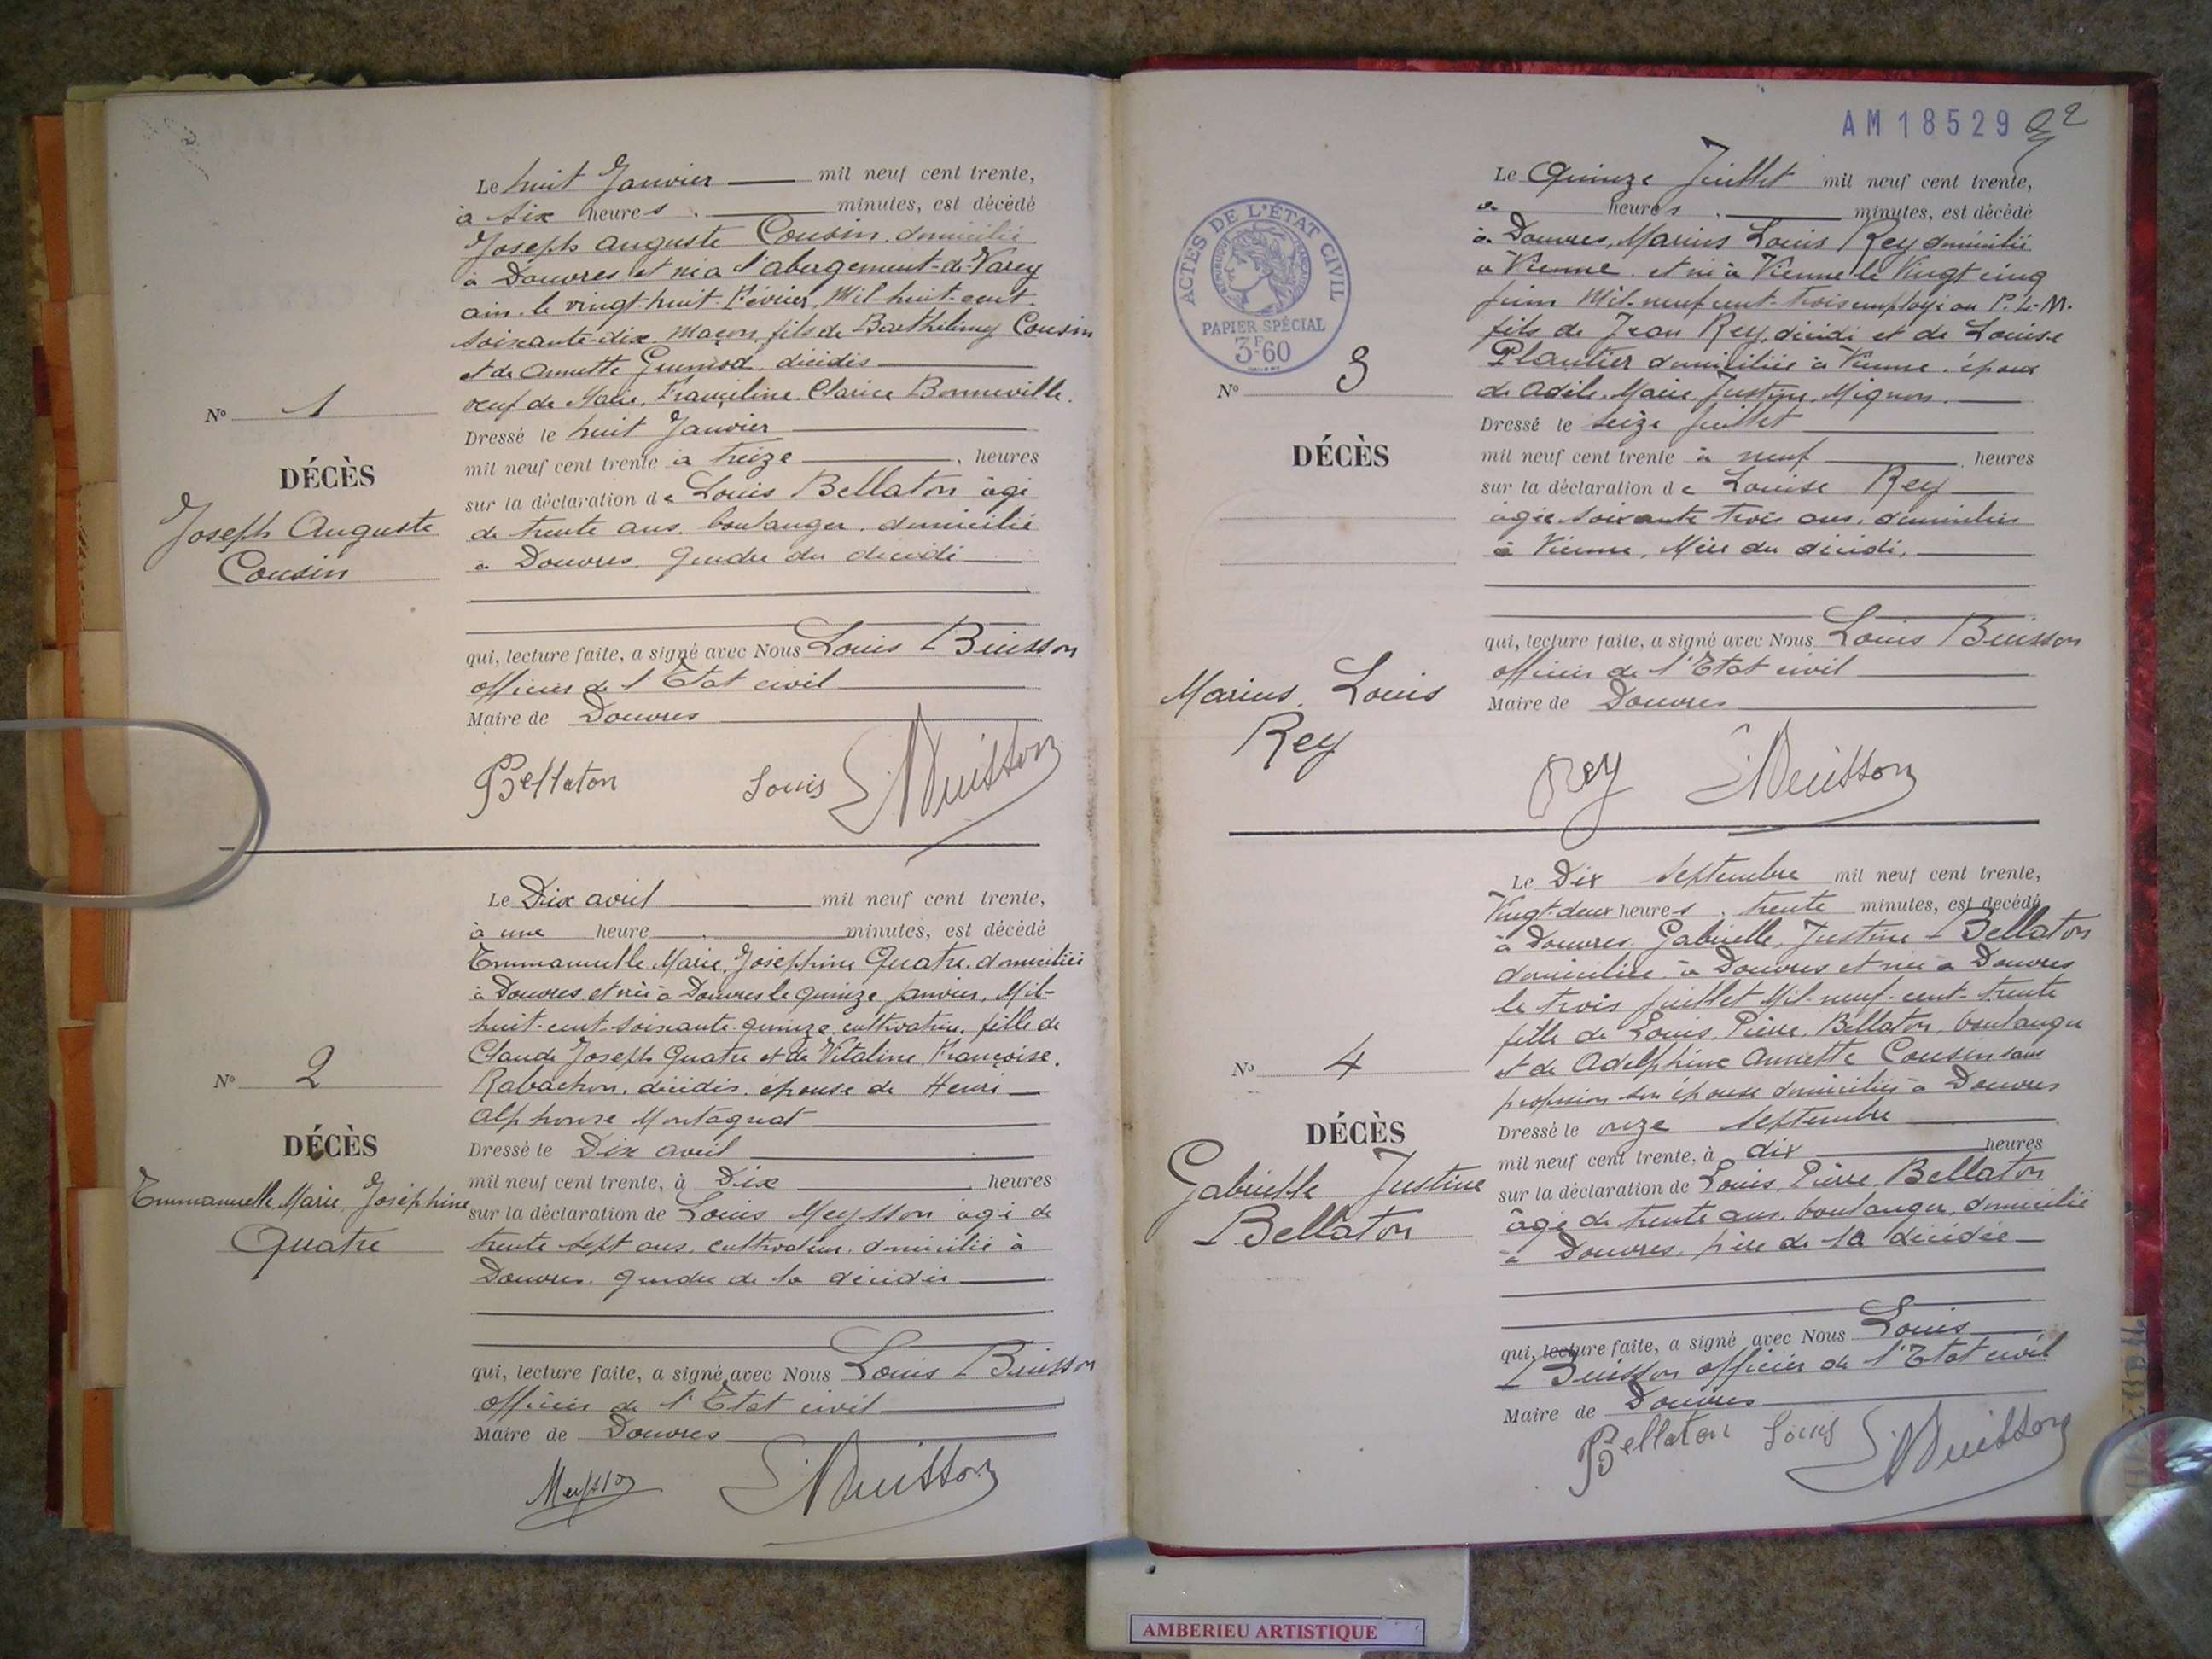 Le huit Janvier mil neuf cent trente,
à six heures . minutes, est décédé
Joseph Auguste Cousin, domicilié
à Douvres et né à l'abergement-de-Varey
ain. le vingt-huit Février, Mil-huit-cent-
soixante-dix. Maçon, fils de Barthélemy Cousin
et de Annette décédés
veuf de Marie, Franceline, Clarice Bonneville.
Dressé le huit Janvier
mil neuf cent trente à treize , heures
sur la déclaration de Louis Bellaton âgé
de trente ans. boulanger. domicilié
à Douvres. Gendre du décédé
qui, lecture faite, a signé avec Nous Louis Buisson
officier de l'Etat civil
Maire de Douvres
Bellaton Louis Buisson
N° 1
DÉCÈS
Joseph Auguste
Cousin
Le Dix avril mil neuf cent trente,
à une heure , minutes, est décédé
Emmanuelle, Marie, Joséphine Quatre, domiciliée
à Douvres et née à Douvres le quinze janvier, Mil-
huit-cent-soixante-quinze, cultivatrice, fille de
Claude Joseph Quatre et de Vitaline, Françoise.
Rabachon. décédés. épouse de Henri
Alphonse Montagnat
Dressé le Dix avril
mil neuf cent trente, à Dix heures
sur la déclaration de Louis Meysson âgé de
trente sept ans, cultivateur, domicilié à
Douvres. gendre de la décédée
qui, lecture faite, a signé avec Nous Louis Buisson
officier de l'Etat civil
Maire de Douvres
Meysson Buisson
N° 2
DÉCÈS
Emmanuelle, Marie, Joséphine
Quatre
AM 18529
ACTES DE L'ÉTAT CIVIL
RÉPUBLIQUE FRANÇAISE
PAPIER SPÉCIAL
3F60
Le Quinze Juillet mil neuf cent trente,
à heures , minutes, est décédé
à Douvres, Marius Louis Rey domicilié
à Vienne et né à Vienne le Vingt cinq
juin Mil-neuf cent-trois employé au P.L.M.
fils de Jean Rey, décédé et de Louise
Plantier domiciliée à Vienne. époux
de Adèle, Marie, Justine, Mignon.
Dressé le seize juillet
mil neuf cent trente à neuf heures
sur la déclaration de Louise Rey
âgée soixante trois ans, domiciliée
à Vienne, Mère du décédé,
qui, lecture faite, a signé avec Nous Louis Buisson
officier de l'Etat civil
Maire de Douvres
Rey Buisson
N° 3
DÉCÈS
Marius, Louis
Rey
Le Dix septembre mil neuf cent trente,
Vingt-deux heures , trente minutes, est décédé
à Douvres. Gabrielle, Justine Bellaton
domiciliée à Douvres et née à Douvres
le trois juillet Mil-neuf-cent-trente
fille de Louis, Pierre, Bellaton, boulanger
et de Adelphine Annette Cousin sans
profession son épouse domiciliés à Douvres
Dressé le onze septembre
mil neuf cent trente, à dix heures
sur la déclaration de Louis, Pierre, Bellaton
âgé de trente ans. boulanger, domicilié
à Douvres. père de la décédée
qui, lecture faite, a signé avec Nous Louis
Buisson officier de l'Etat civil
Maire de Douvres
Bellaton Louis Buisson
N° 4
DÉCÈS
Gabrielle Justine
Bellaton
AMBERIEU ARTISTIQUE